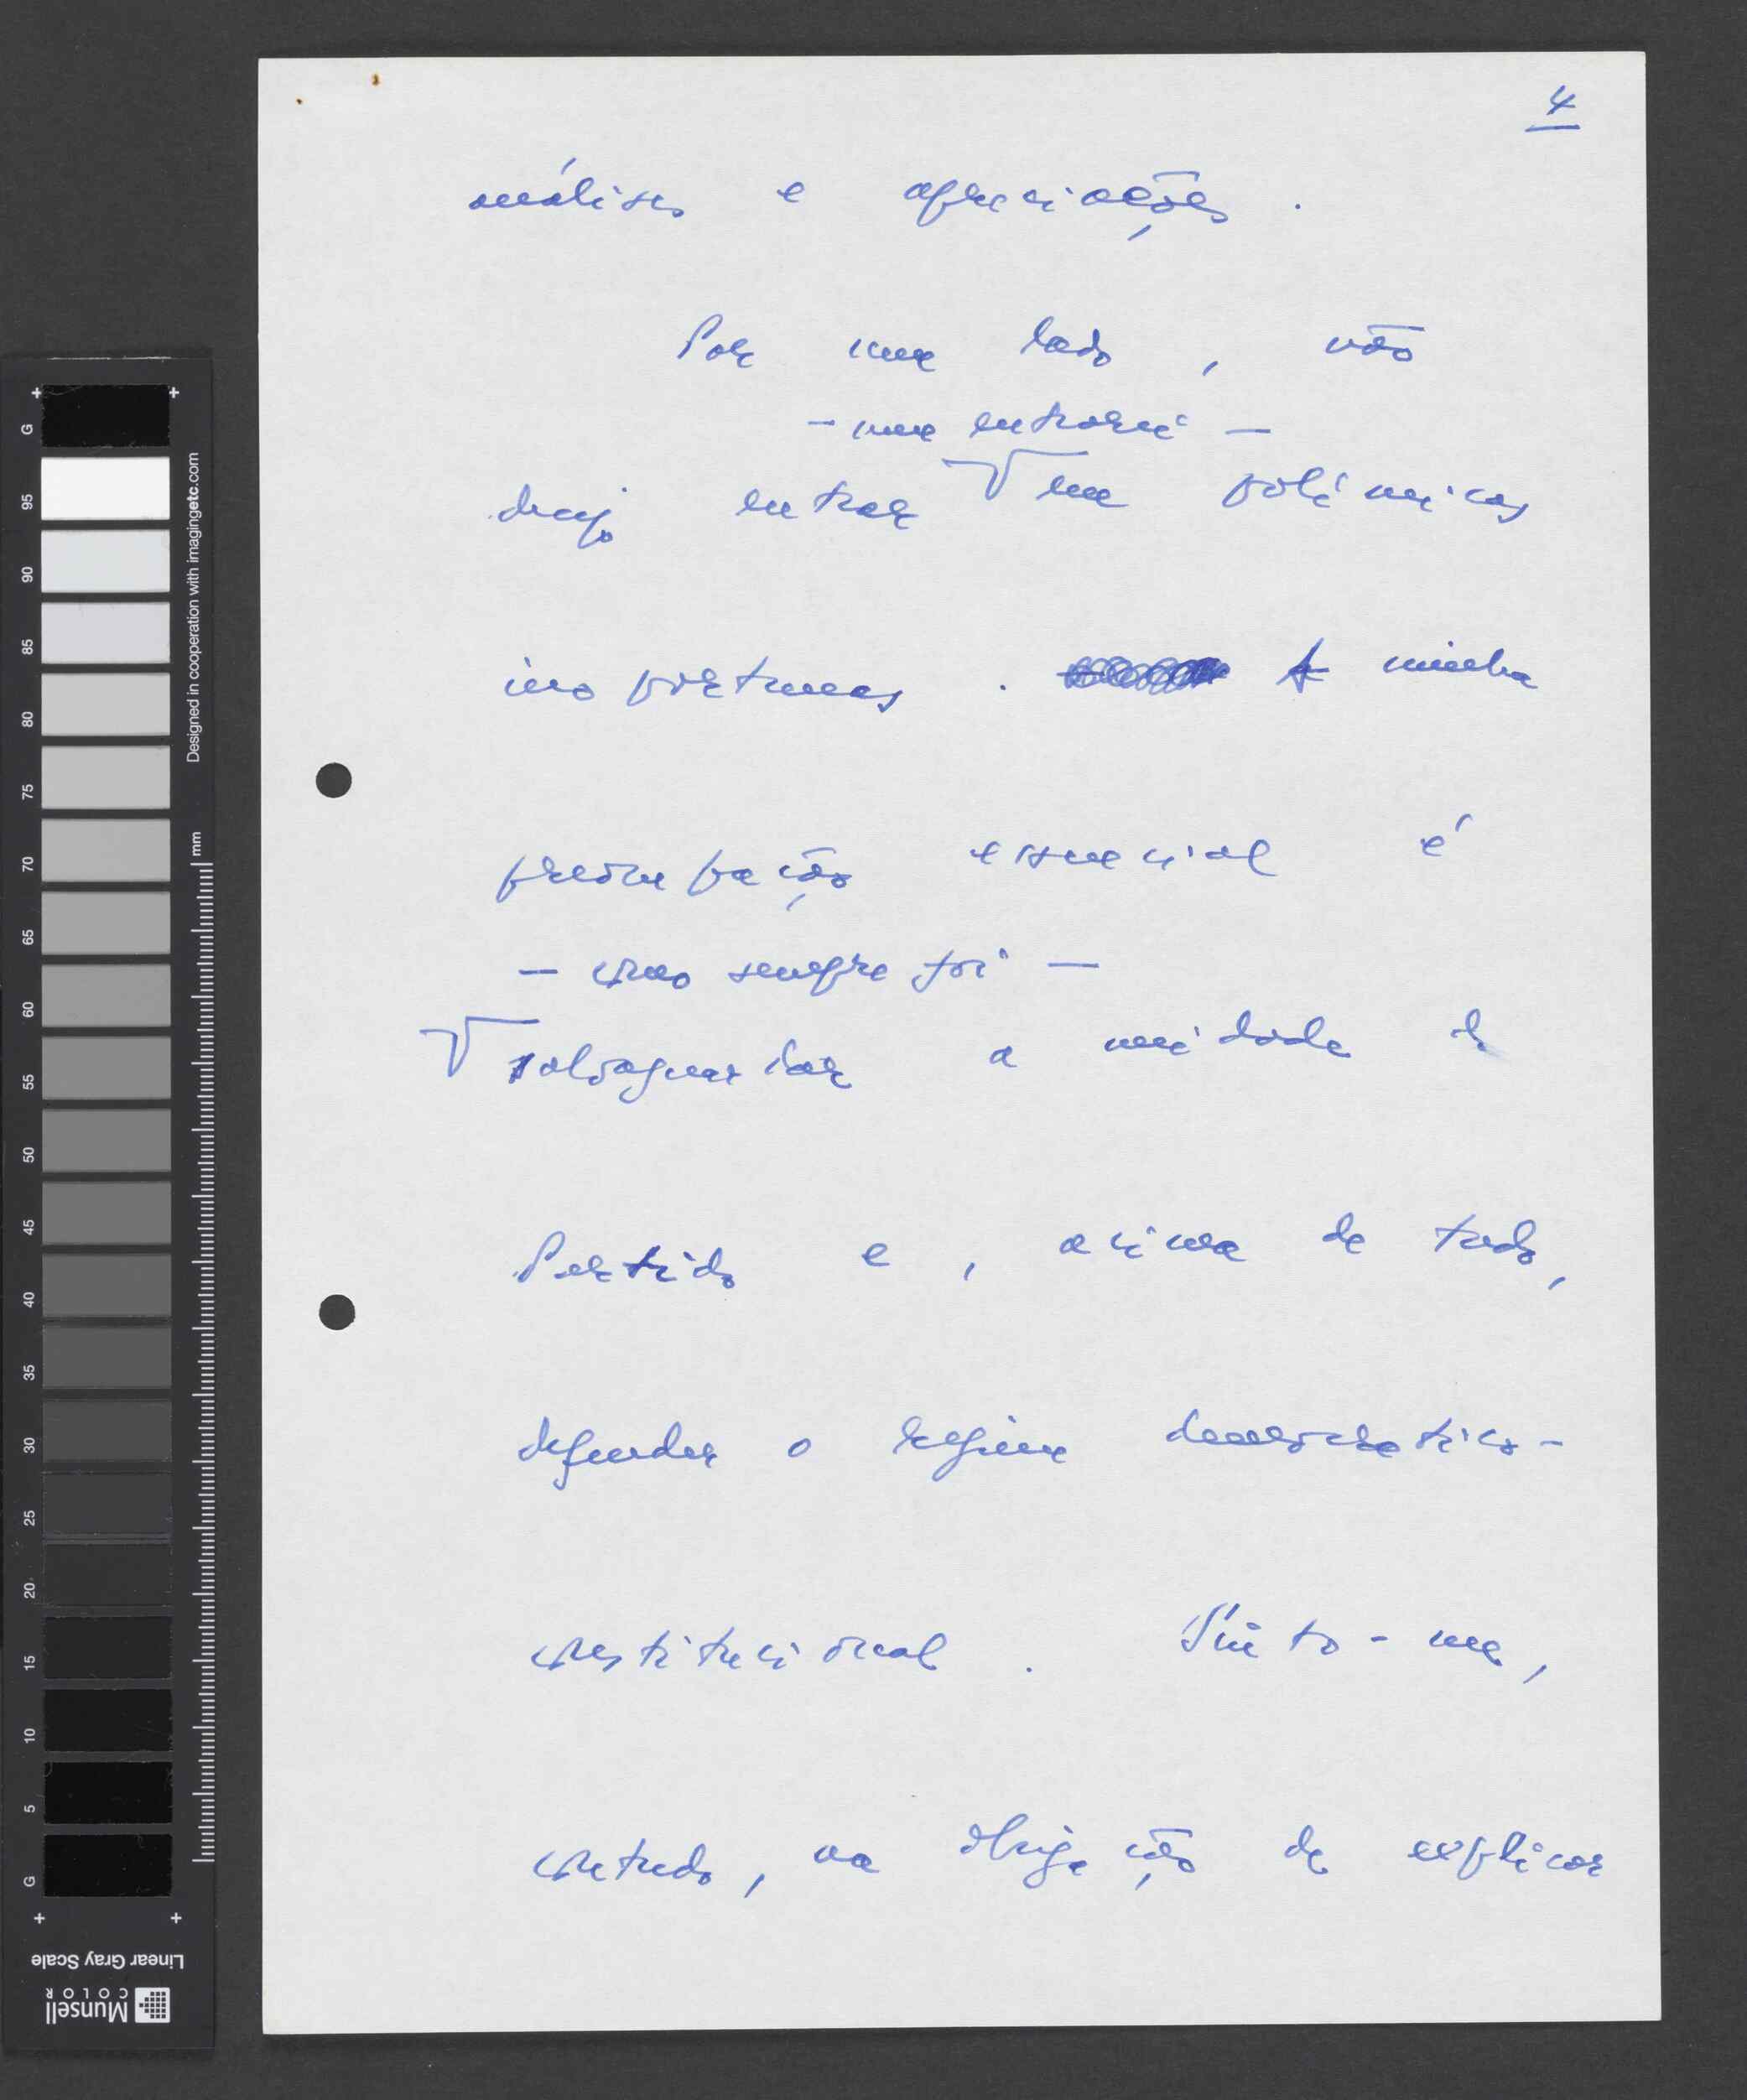 4
análises e apreciações.
Por um lado, não
- nem entrarei -
desejo entrar em polémicas
inoportunas. A minha
preocupação essencial é
- como sempre foi -
salvaguardar a unidade do
Partido e, acima de tudo,
defender o regime democrático-
constitucional. Sinto-me,
contudo, na obrigação de explicar
G
95
90
85
80
75
70
65
60
55
50
45
40
35
30
25
20
15
10
5
G
Designed in cooperation with imagingetc.com
mm
Linear Gray Scale
Munsell
COLOR